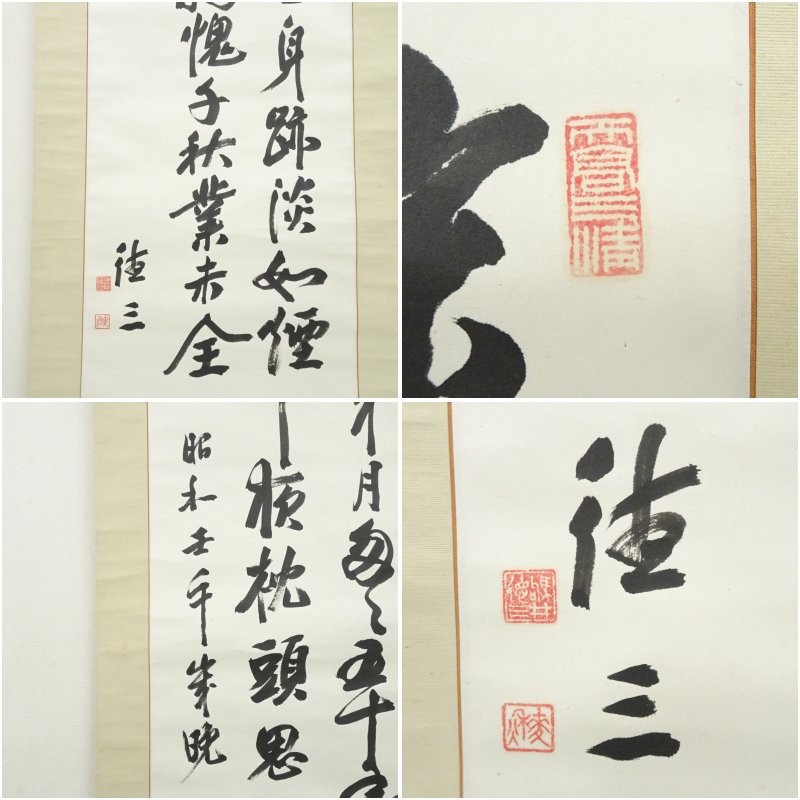 身跡淡如煙
愧千秋業未全
徳三
月匆々五十
横枕頭思
昭和壬午歳晩
徳三